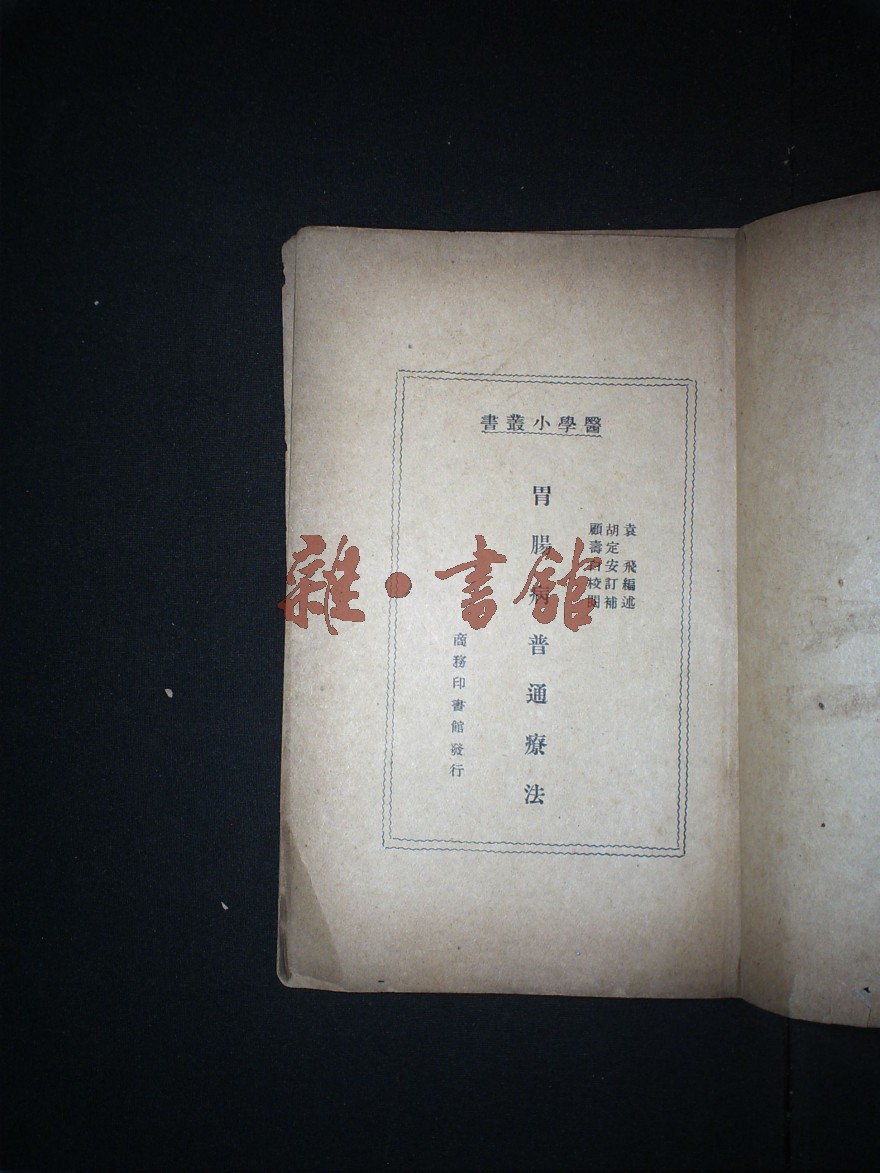 書叢小學醫
袁飛編述
胡定安訂補
顧壽白校閱
胃腸病普通療法
商務印書館發行
雜·書館